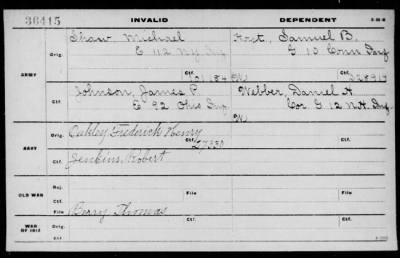 36415 INVALID DEPENDENT
Shaw, Michael Samuel B.
Orig. E 112 N.Y. Inf. G 10 Conn Inf
ARMY Ctf. Ctf.
Johnson, James P. Webber, Daniel H.
Orig. E 92 Ohio Inf. Cor G 12 N.H. Inf.
W
Oakley Frederick Henry
Orig. Ctf.
NAVY
Jenkins, Robert
Ctf.
Rej.
OLD WAR Ctf. File File
File Berry Thomas
WAR OF 1812 Orig. Ctf. Ctf.
Ctf.